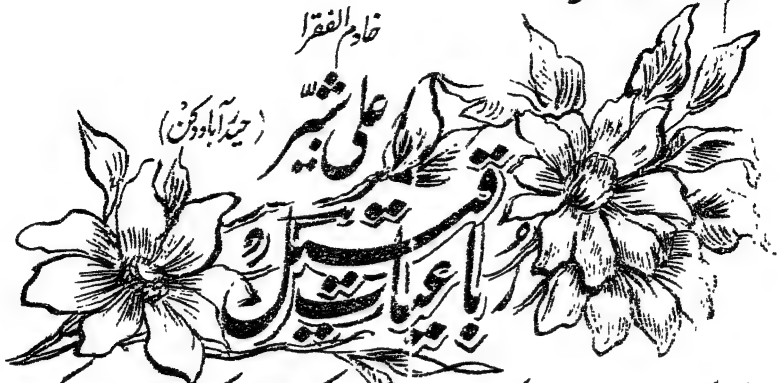 خادم الفقرا
علی شبّر
(حیدرآباد دکن)
رُباعیات قتیل